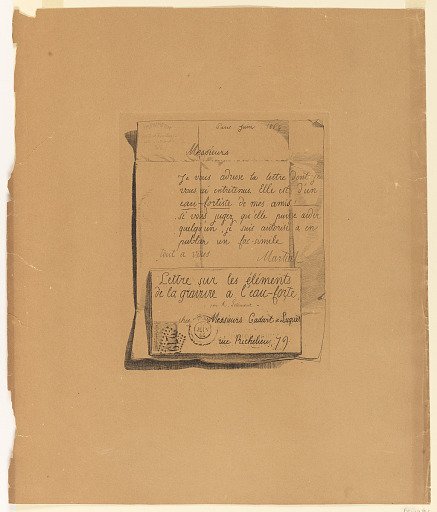 Paris Juin
Messieurs
Je vous adresse la lettre dont je
vous ai entretenus. Elle est d'un
eau-fortiste de mes amis
si vous jugez qu'elle puisse aider
quelqu'un je suis autorisé à en
publier un fac-simile
Tout à vous
Martial
Lettre sur les éléments
de la gravure à l'eau-forte
chez Messieurs Cadart & Luquet
rue Richelieu, 79